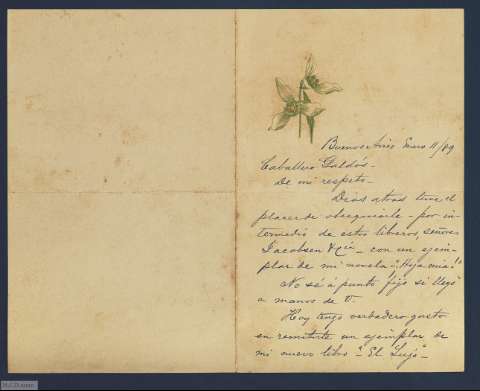 Buenos Aires Enero 11/89
Caballero Galdós.
De mi respeto.
Dias atras tuve el
placer de obsequiarle - por in-
termedio de estos libreros, señores
Jacobsen & Cia - con un ejem-
plar de mi novela - "¡Hija mia!"
No sé á punto fijo si llegó
a manos de V.
Hoy tengo verdadero gusto
en remitirle un ejemplar de
mi nuevo libro "El Lujo" -